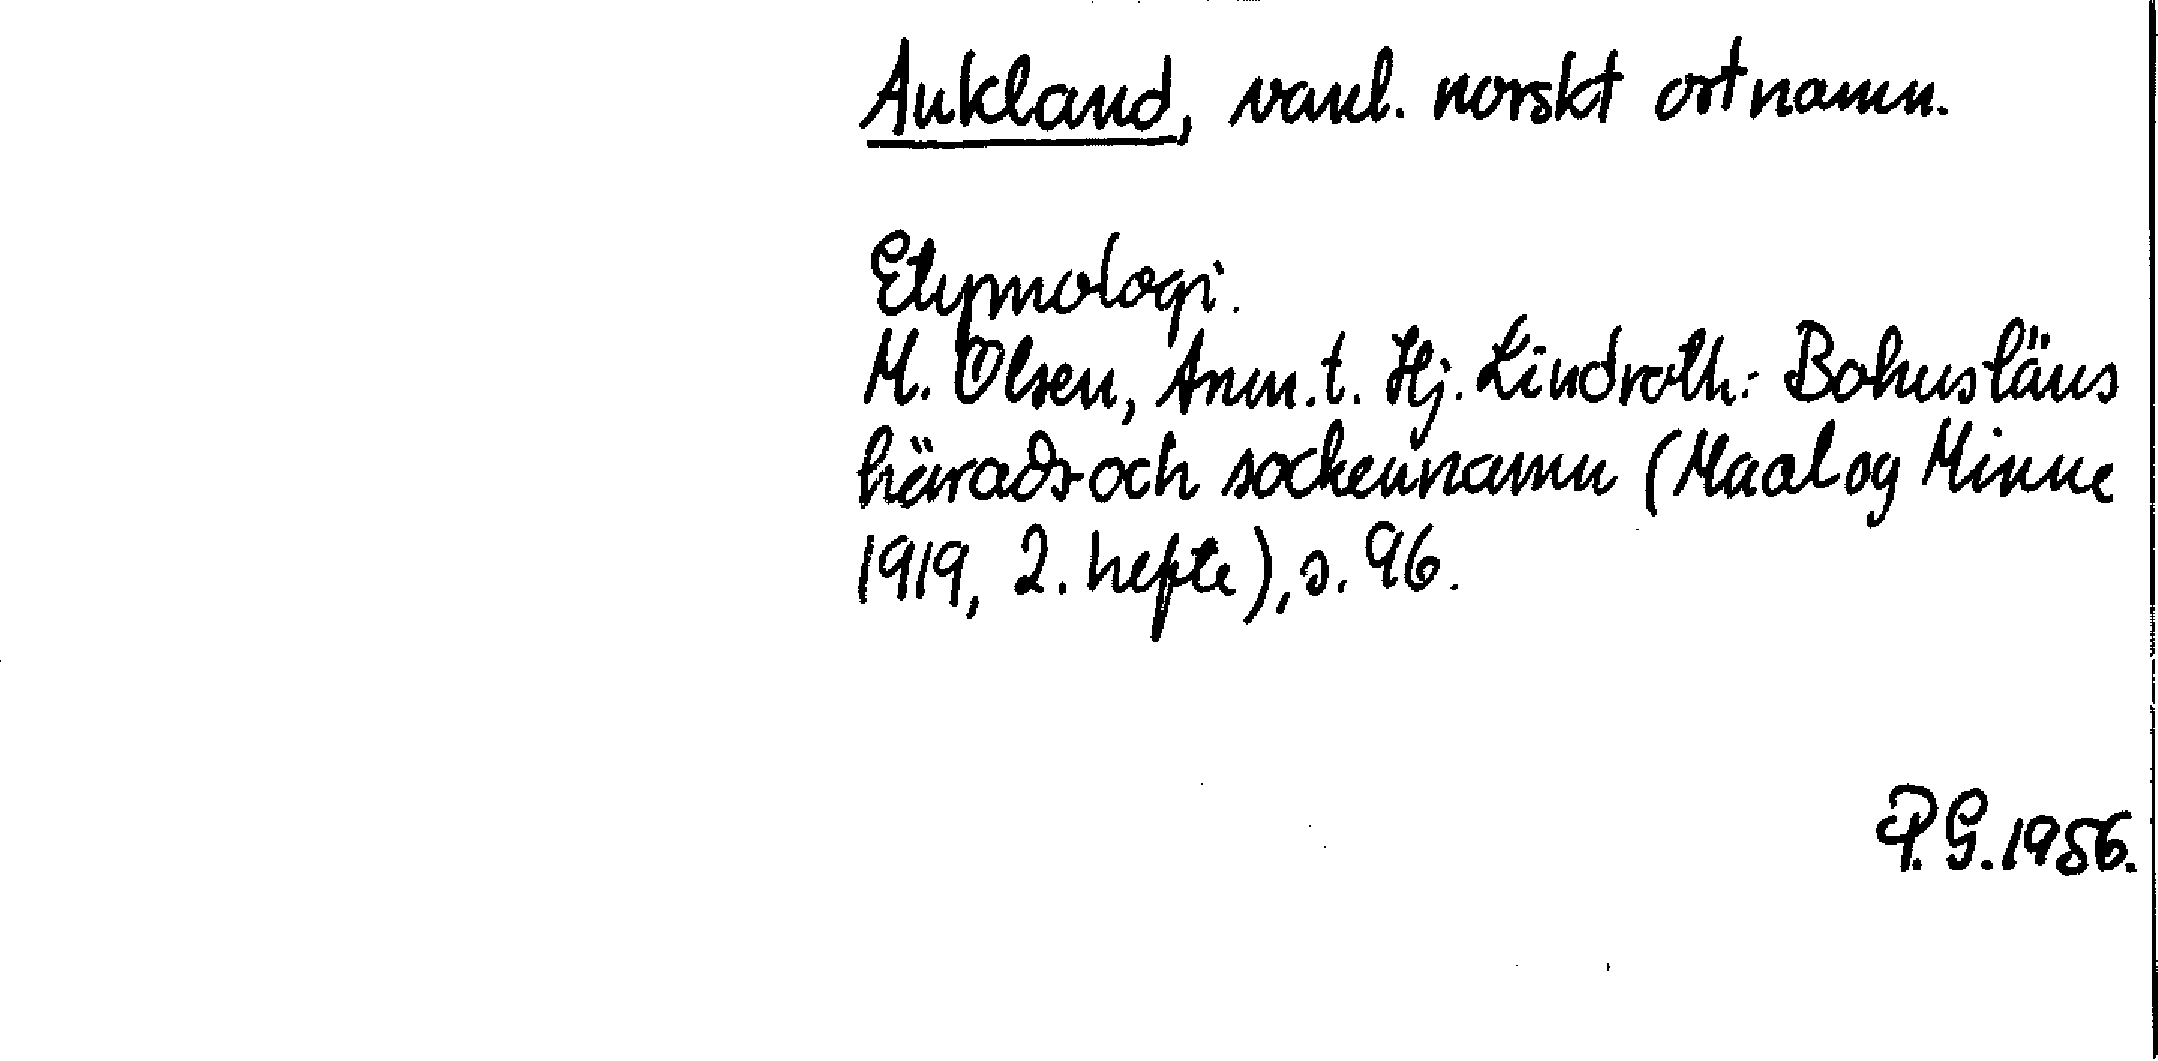 Aukland, vanl. norskt ortnamn.
Etymologi.
M. Olsen, Anm. t. Hj. Lindroth: Bohusläns
härads- och sockennamn (Maal og Minne
1919, 2. hefte), s. 96.
P.G. 1956.